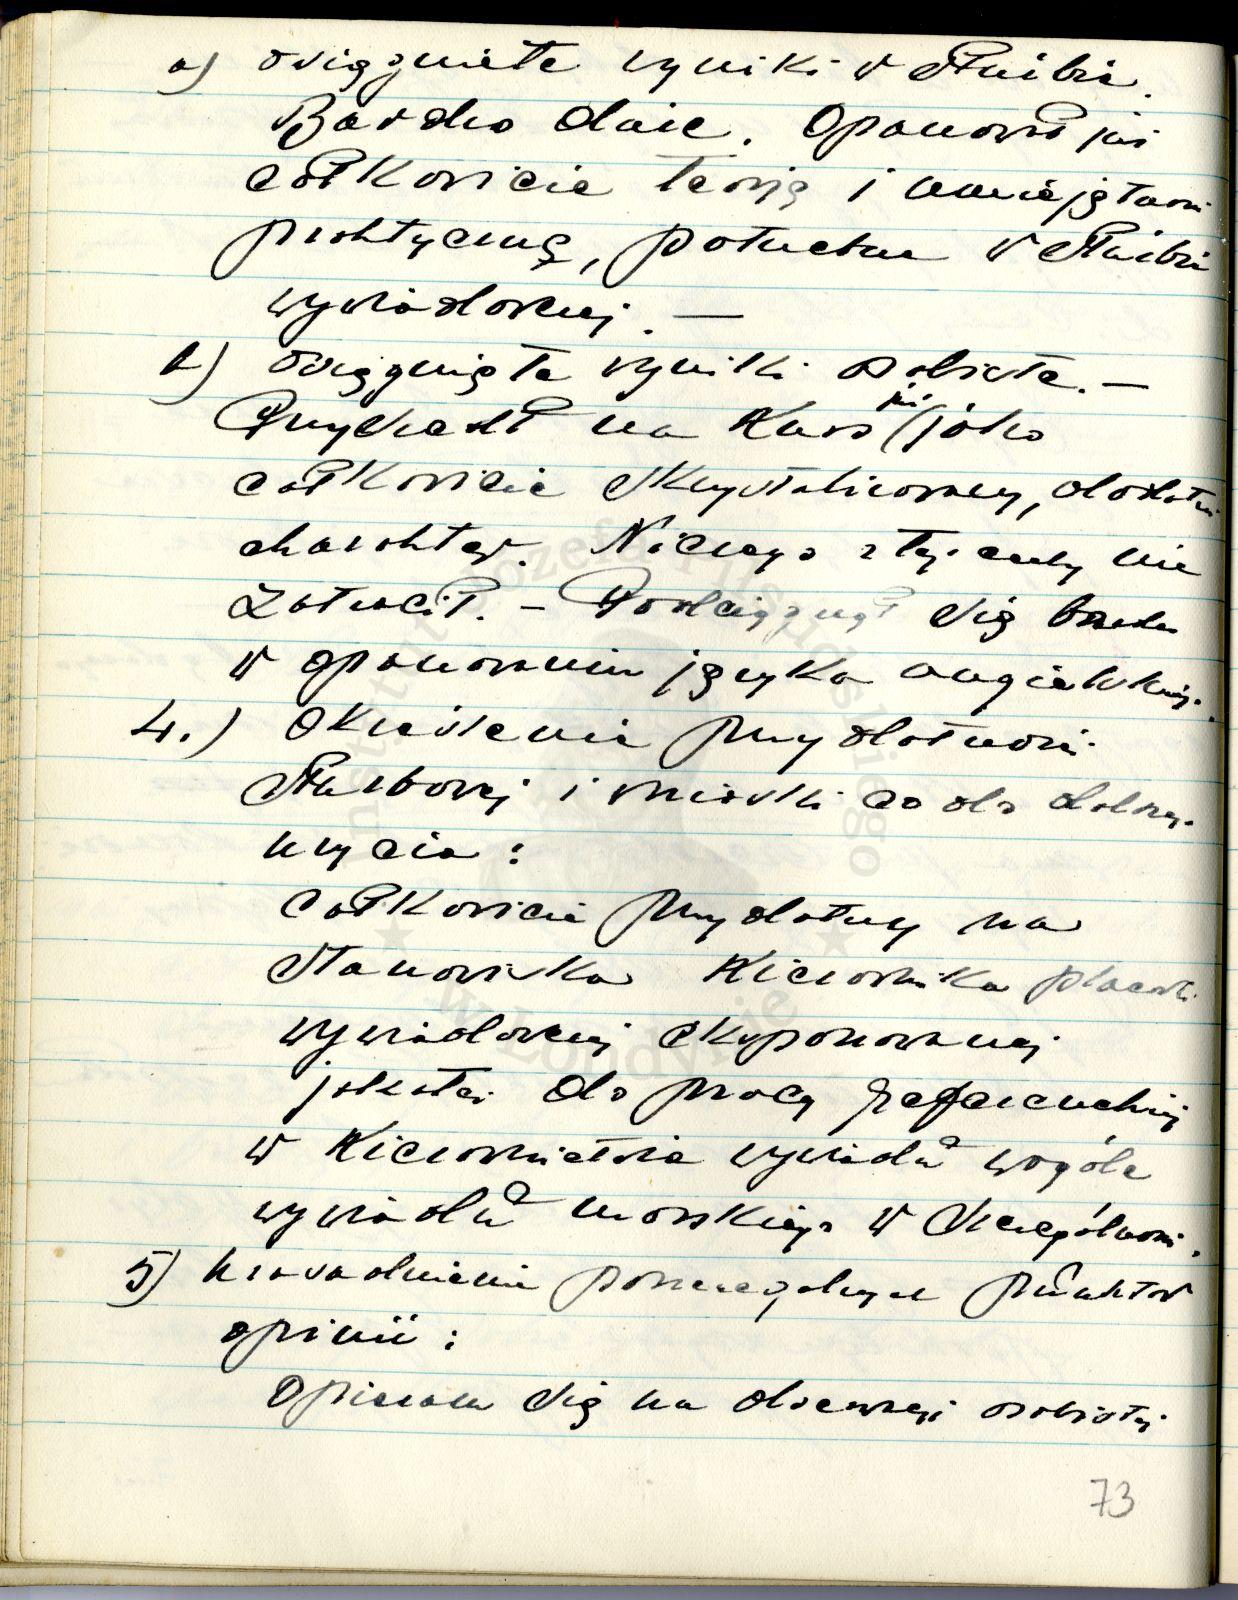 a) osiągnięte wyniki w służbie.
Bardzo duże. Opanował już
całkowicie teorję i umiejętność
praktyczną, potrzebne w służbie
wywiadowczej. —
b) osiągnięte wyniki osobiste. —
Przyszedł na Kurs już jako
całkowicie skrystalizowany, dodatni
charakter. Niczego z tej cechy nie
zatracił. – Podciągnął się bardzo
w opanowaniu języka angielskiego.
4.) Określenie przydatności
służbowej i wnioski co do dalszego
użycia:
całkowicie przydatny na
stanowiska Kierownika placówki
wywiadowczej eksponowanej
jak też do pracy referenckiej
w Kierownictwie wywiadu wogóle
wywiadu morskiego w szczególności.
5) uzasadnienie poszczególnych punktów
opinii:
Opieram się na obserwacji osobistej
73
Instytut Józefa Piłsudskiego
w Londynie